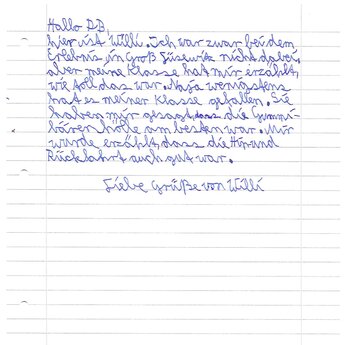 Hallo DB,
hier ist Willi. Ich war zwar bei dem
Erlebnis in Groß Lüsewitz nicht dabei,
aber meine Klasse hat mir erzählt,
wie toll das war. Naja wenigstens
hat es meiner Klasse gefallen. Sie
haben mir gesagt, dass die Gummi-
bären Hölle am besten war. Mir
wurde erzählt, dass die Hin und
Rückfahrt auch gut war.
Liebe Grüße von Willi